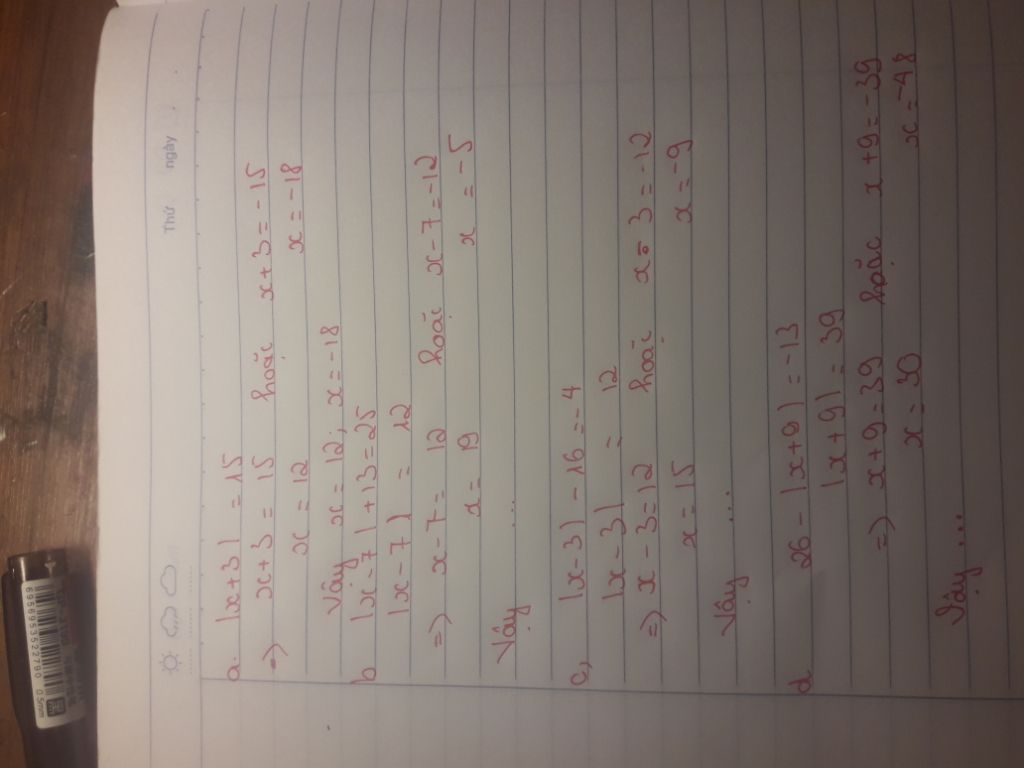 Thứ ngày
a. |x+3| = 15
=> x+3 = 15 hoặc x+3 = -15
x = 12 x = -18
Vậy x = 12; x = -18
b |x-7| + 13 = 25
|x-7| = 12
=> x-7 = 12 hoặc x-7 = -12
x = 19 x = -5
Vậy ...
c, |x-3| - 16 = -4
|x-3| = 12
=> x-3 = 12 hoặc x-3 = -12
x = 15 x = -9
Vậy ...
d 26 - |x+9| = -13
|x+9| = 39
=> x+9 = 39 hoặc x+9 = -39
x = 30 x = -48
Vậy ...
6956953522790 0.5mm